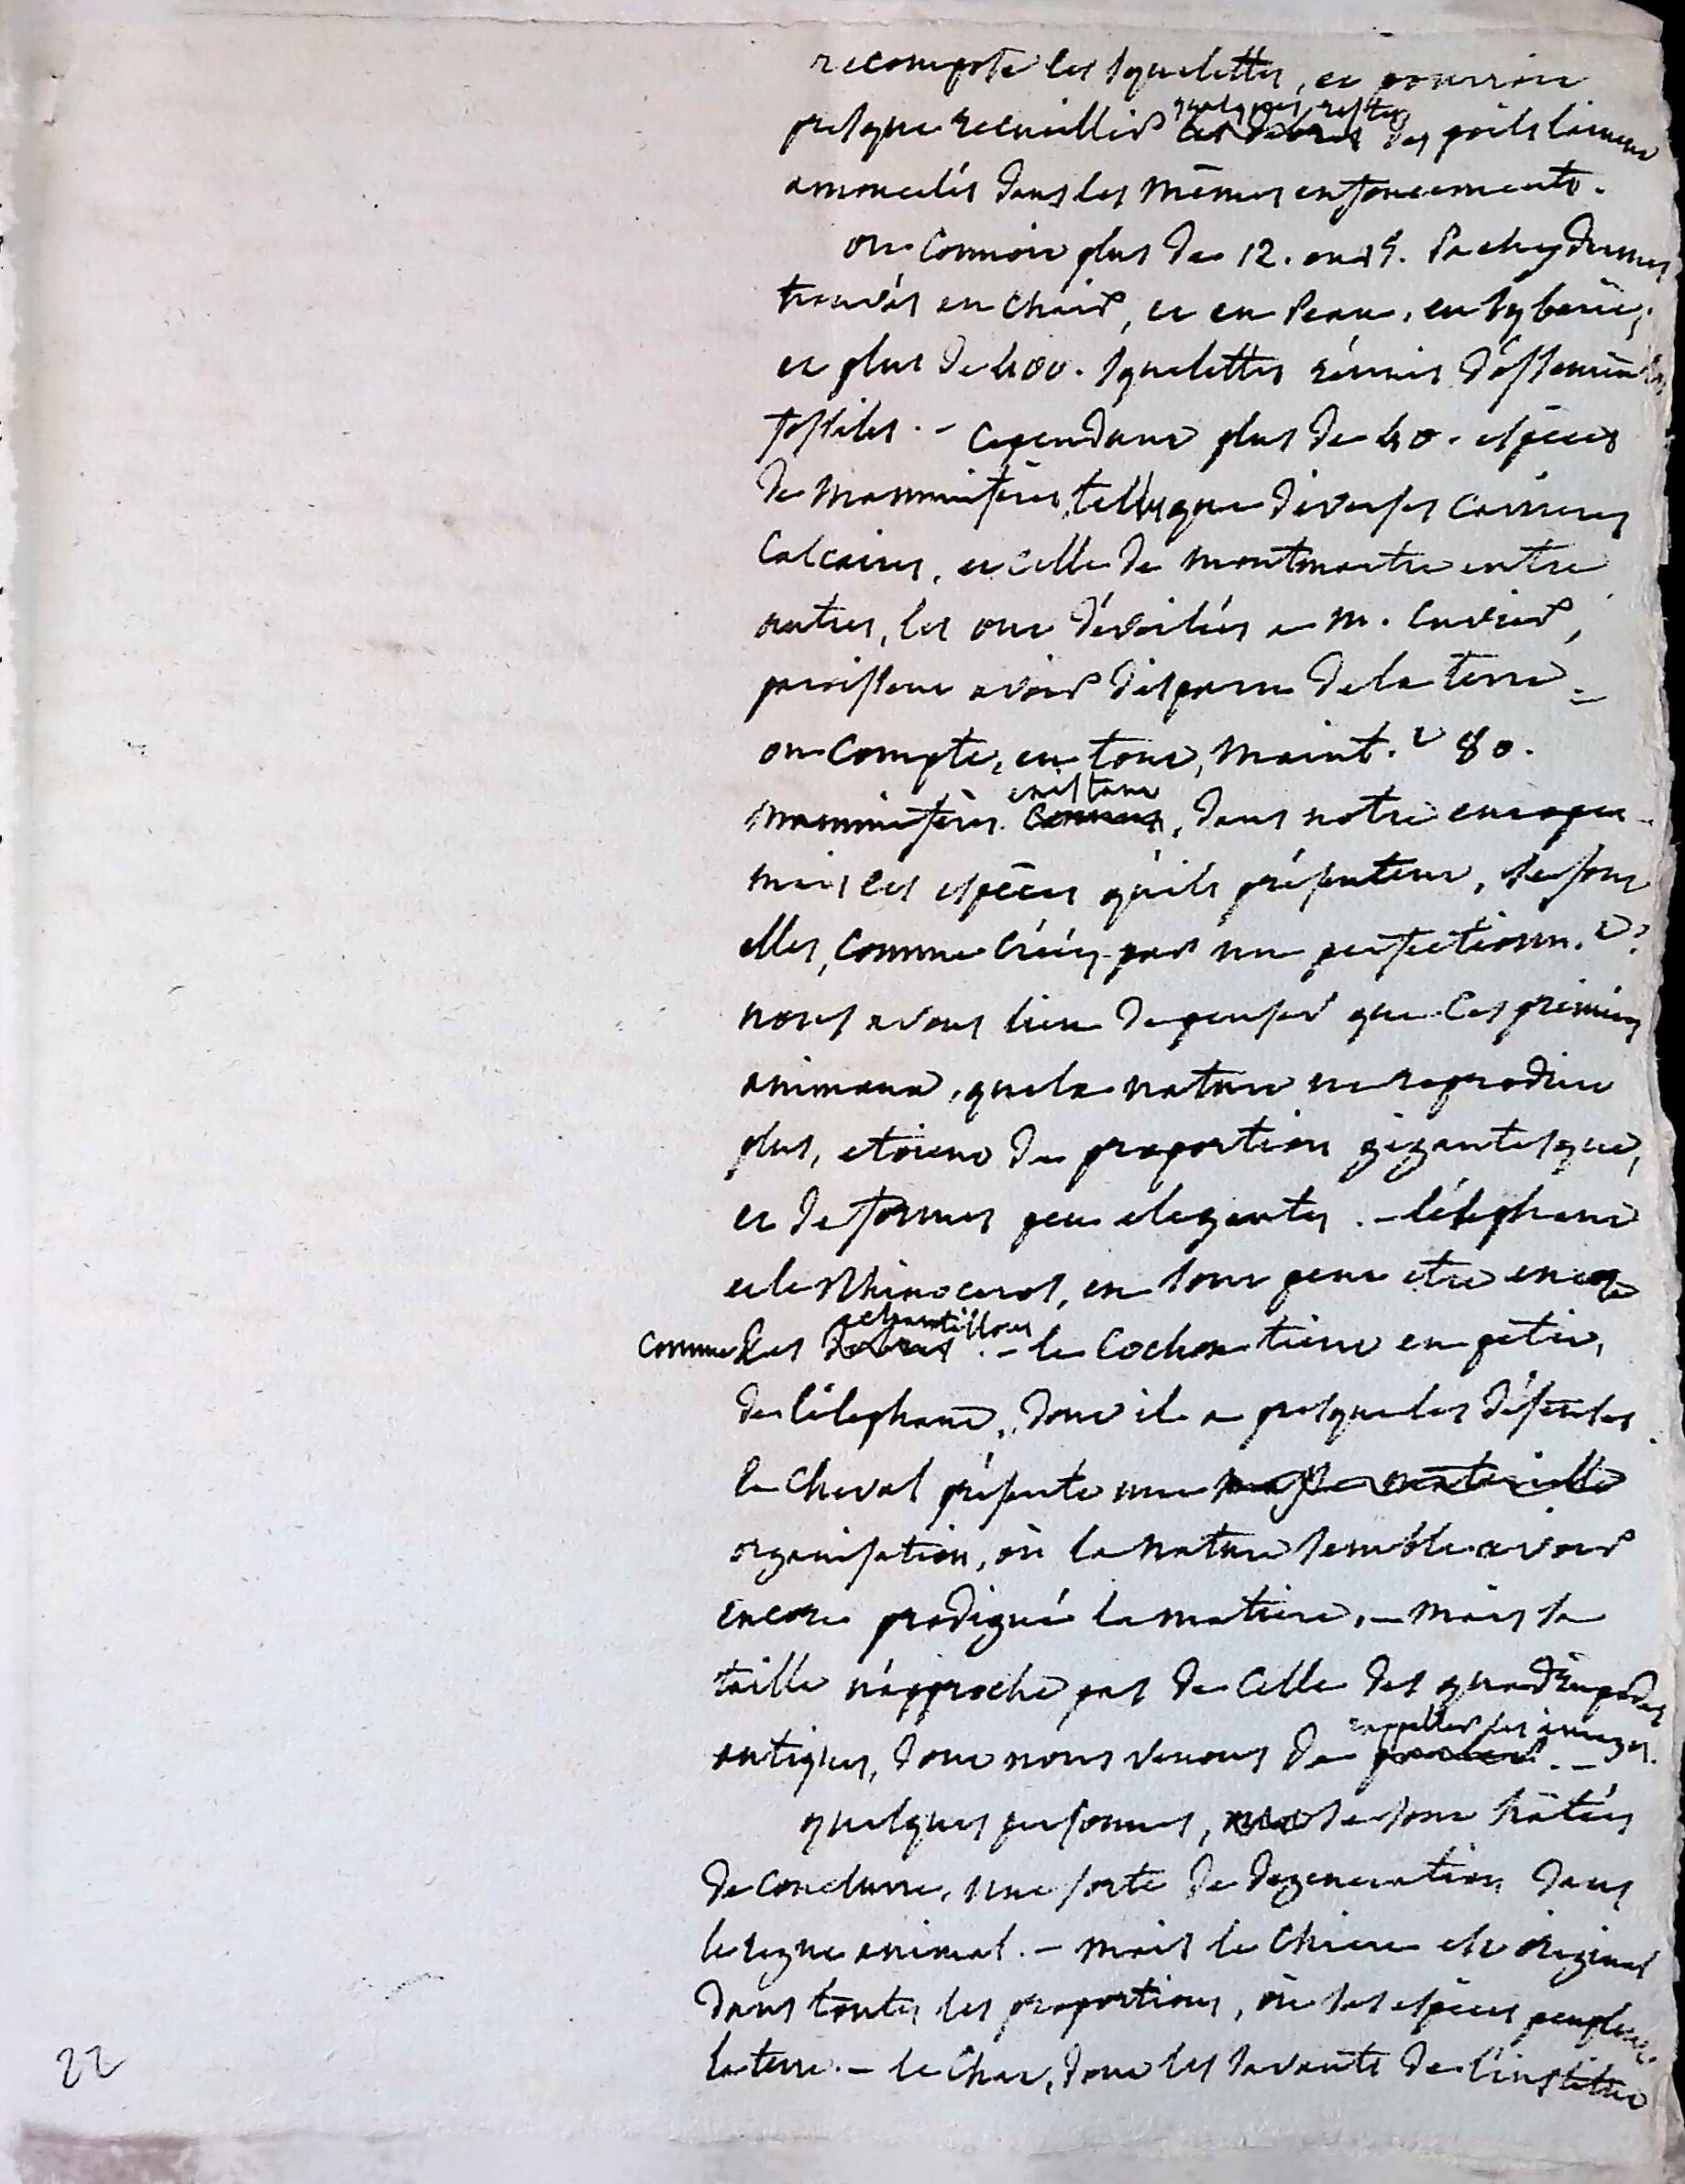 recomposé les squelettes, et pourroit
presque recueillir quelques restes des poils laineux
amoncelés dans les mêmes enfoncements.
on connoit plus de 12. ou 15. Pachydermes
trouvés en chair, et en Peau, en Syberie,
et plus de 400. squelettes réunis d'ossements
fossiles. - Cependant plus de 40. espèces
de mammifères, telles que diverses carrieres
Calcaires, et celle de montmartre entre
autres, les ont dévoilées a m. Cuvier,
paroissent avoir disparu de la terre.
on compte, en tout, maint.t 80.
mammifères existant, dans notre europe -
mais les espèces qu'ils présentent, se sont
elles, comme créées par un perfectionn.t?
nous avons lieu de penser que les premiers
animaux, que la nature ne reproduit
plus, etoient de proportion gigantesque,
et de formes peu elegantes. - l'éléphant
et le Rhinoceros, en sont peut etre encore
comme des echantillons. - le Cochon tient en petit,
de l'éléphant, dont il a presque les défenses
le Cheval présente une
organisation, où la nature semble avoir
encore prodigué la matiere, - mais sa
taille n'approche pas de celle des quadrupedes
antiques, dont nous venons de rappeller les images. -
quelques personnes, se sont hâtées
de conclurre, une sorte de degeneration dans
le regne animal. - mais le chien est original
dans toutes les proportions, où ses espèces peuplent
la terre. - le Chat, dont les savants de l'institut
22